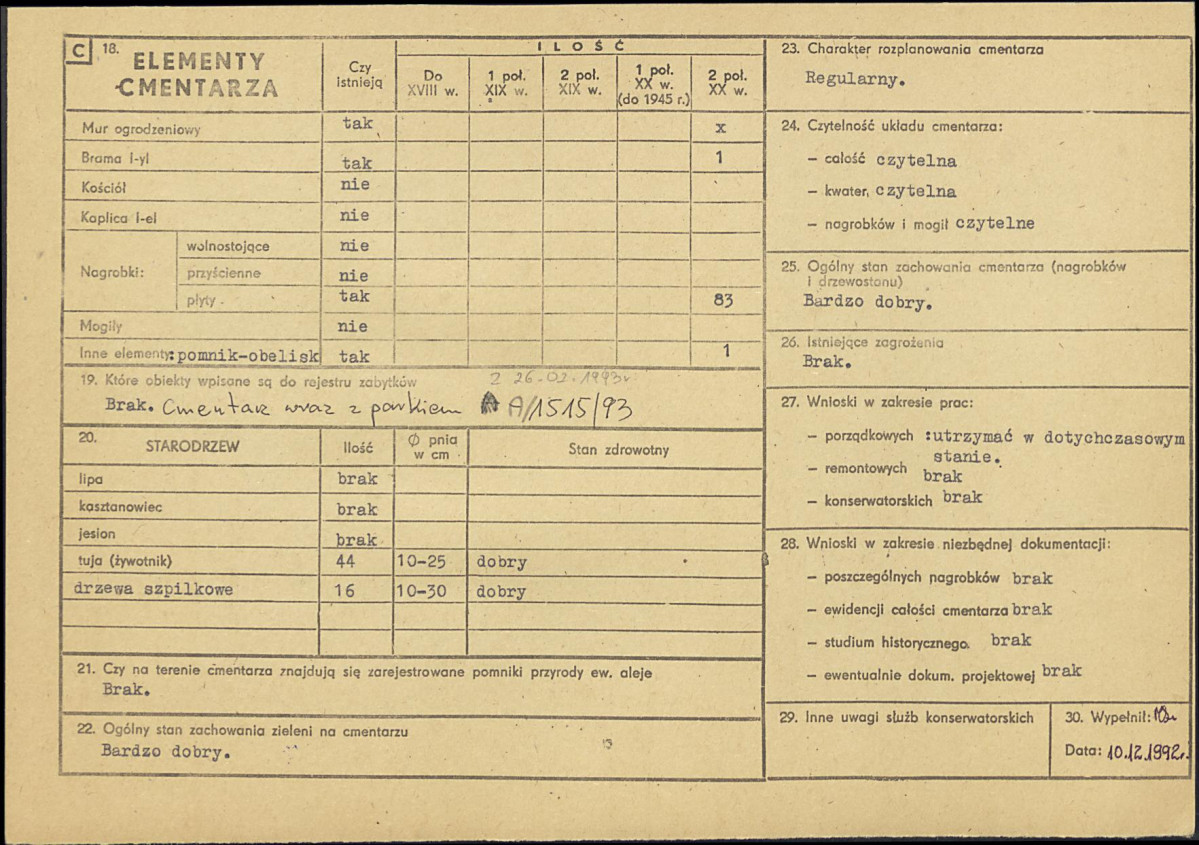 C 18. ELEMENTY CMENTARZA
Czy istnieją
ILOŚĆ
Do XVIII w.
1 poł. XIX w.
2 poł. XIX w.
1 poł. XX w. (do 1945 r.)
2 poł. XX w.
Mur ogrodzeniowy tak x
Brama l-yl tak 1
Kościół nie
Kaplica l-el nie
Nagrobki:
wolnostojące nie
przyścienne nie
płyty tak 83
Mogiły nie
Inne elementy: pomnik-obelisk tak 1
19. Które obiekty wpisane są do rejestru zabytków z 26.02.1993r
Brak. Cmentarz wraz z parkiem A/1515/93
20. STARODRZEW Ilość Ø pnia w cm Stan zdrowotny
lipa brak
kasztanowiec brak
jesion brak
tuja (żywotnik) 44 10-25 dobry
drzewa szpilkowe 16 10-30 dobry
21. Czy na terenie cmentarza znajdują się zarejestrowane pomniki przyrody ew. aleje
Brak.
22. Ogólny stan zachowania zieleni na cmentarzu
Bardzo dobry.
23. Charakter rozplanowania cmentarza
Regularny.
24. Czytelność układu cmentarza:
— całość czytelna
— kwater, czytelna
— nagrobków i mogił czytelne
25. Ogólny stan zachowania cmentarza (nagrobków
i drzewostanu)
Bardzo dobry.
26. Istniejące zagrożenia
Brak.
27. Wnioski w zakresie prac:
— porządkowych :utrzymać w dotychczasowym
stanie.
— remontowych brak
— konserwatorskich brak
28. Wnioski w zakresie niezbędnej dokumentacji:
— poszczególnych nagrobków brak
— ewidencji całości cmentarza brak
— studium historycznego. brak
— ewentualnie dokum. projektowej brak
29. Inne uwagi służb konserwatorskich
30. Wypełnił:
Data: 10.12.1992r.